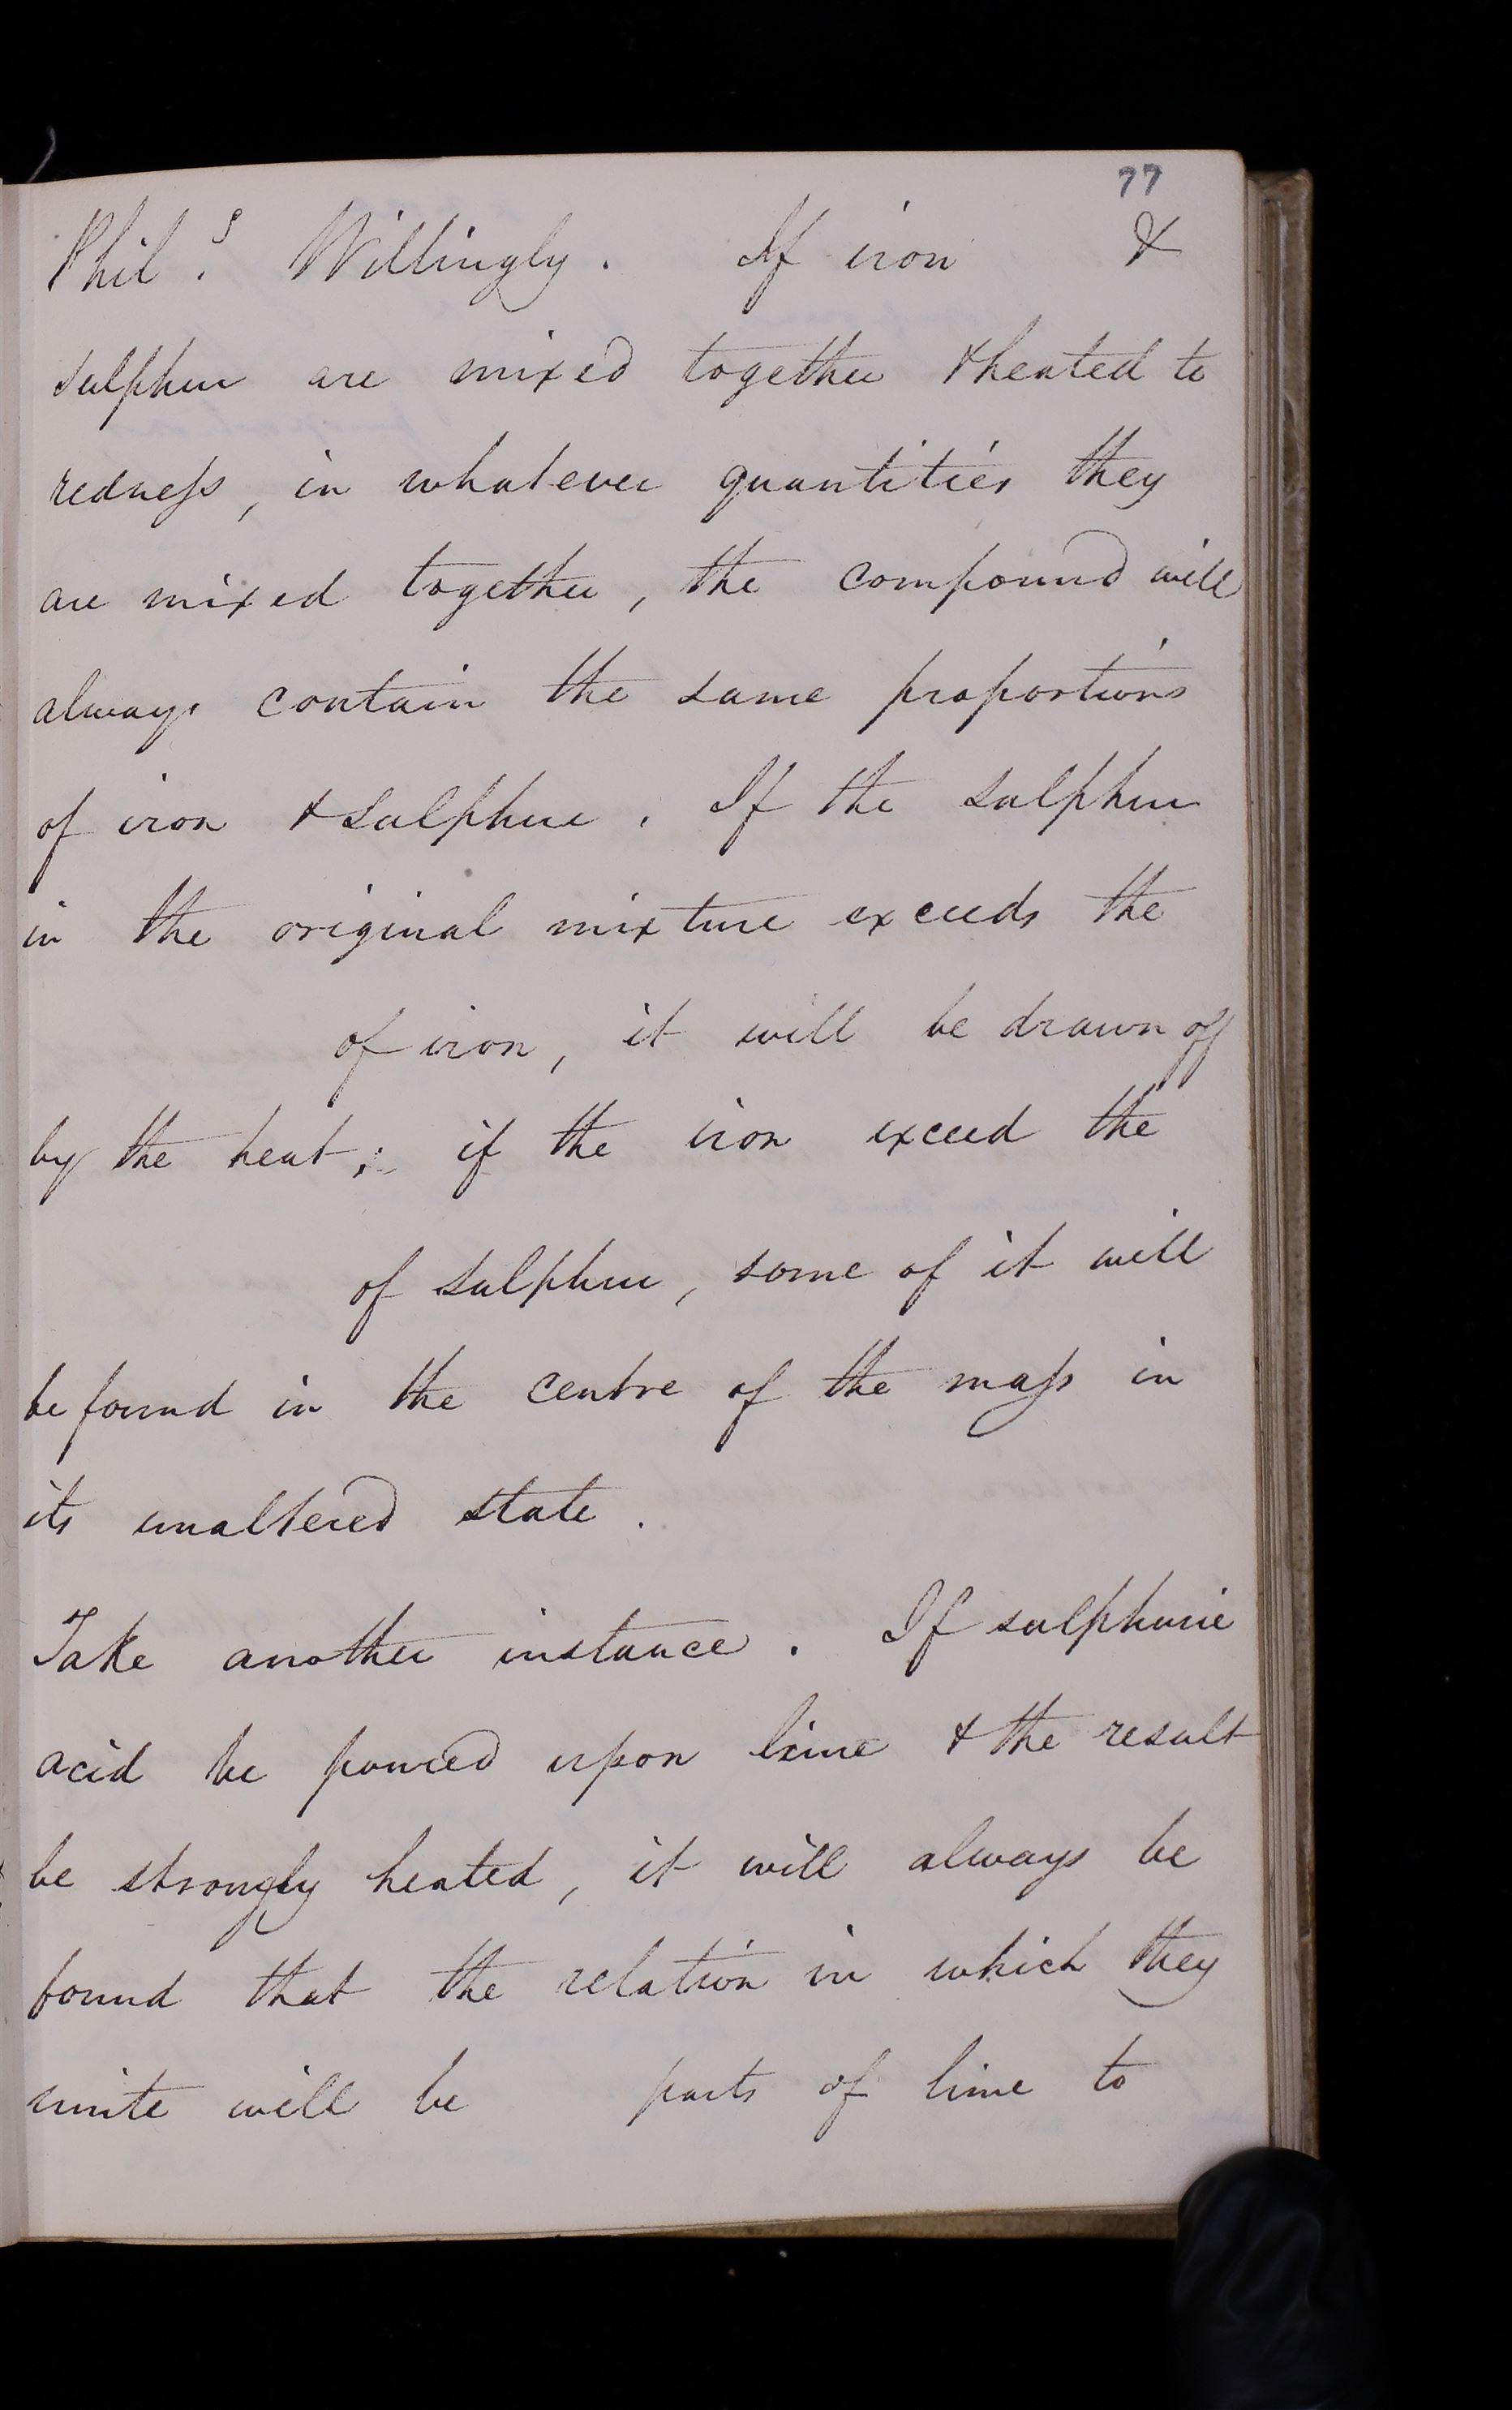 77
Phil.s Willingly. If iron &
sulphur are mixed together & heated to
redness, in whatever quantities they
are mixed together, the compound will
always contain the same proportions
of iron & sulphur. If the sulphur
in the original mixture exceeds the
of iron, it will be drawn off
by the heat; if the iron exceed the
of sulphur, some of it will
be found in the centre of the mass in
its unaltered state.
Take another instance. If sulphuric
acid be poured upon lime & the result
be strongly heated, it will always be
found that the relation in which they
unite will be parts of lime to